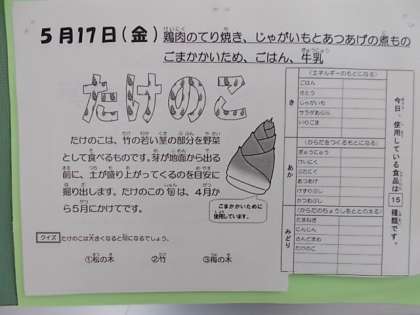 5月17日(金)
鶏肉のてり焼き、じゃがいもとあつあげの煮もの
ごまかかいため、ごはん、牛乳
たけのこ
たけのこは、竹の若い茎の部分を野菜
として食べるものです。芽が地面から出る
前に、土が盛り上がってくるのを目安に
掘り出します。たけのこの旬は、4月か
ら5月にかけてです。
ごまかかいために
使用しています。
クイズ
たけのこは大きくなると何になるでしょう。
①松の木 ②竹 ③梅の木
今日、使用している食品は15種類です。
き
(エネルギーのもとになる)
ごはん
さとう
じゃがいも
サラダあぶら
いりごま
あか
(からだをつくるもとになる)
ぎゅうにゅう
けいにく
ぶたにく
あつあげ
けずりぶし
かつおぶし
みどり
(からだのちょうしをととのえる)
たまねぎ
にんじん
さんどまめ
たけのこ